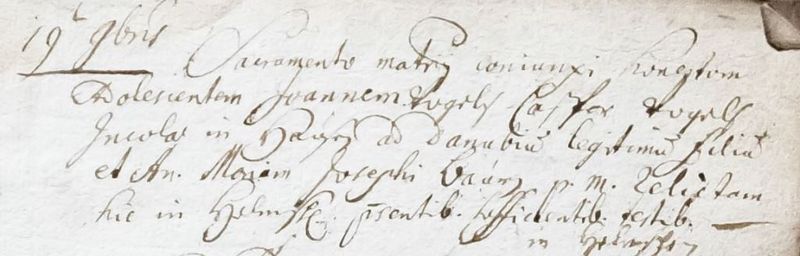 19 9bris
Sacramento matrij coniunxi honestum
Adolescentem Joannem Vogels Caspar Vogels
Incolae in Hausen ad Danubiu legitimu filiu
et An. Mariam Josephi baurs p. m. relictam
hic in pſentib. testib.
in